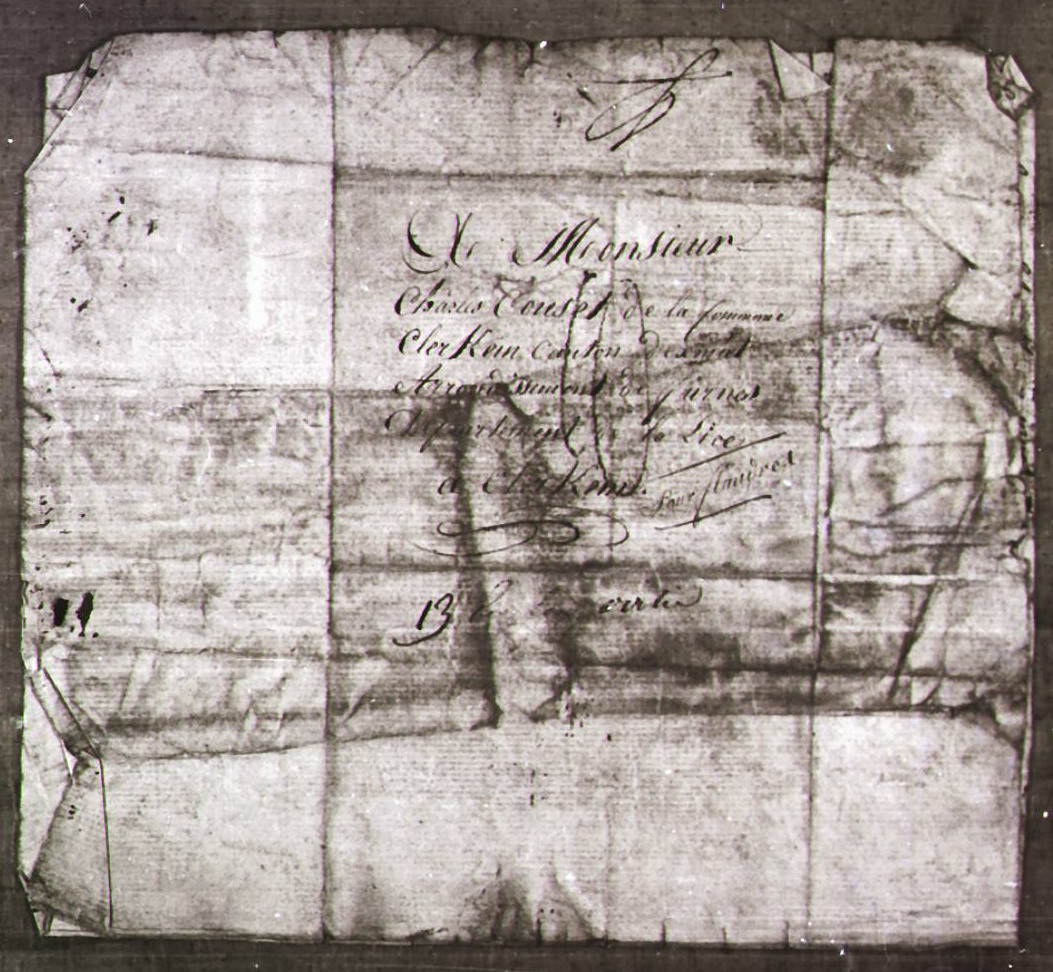 A Monsieur
Charles Couset de la Commune
Clerkem Canton dixmut
Arrondissement de furnes
Département de la Lice
a Clerkem.
pour flandres
13